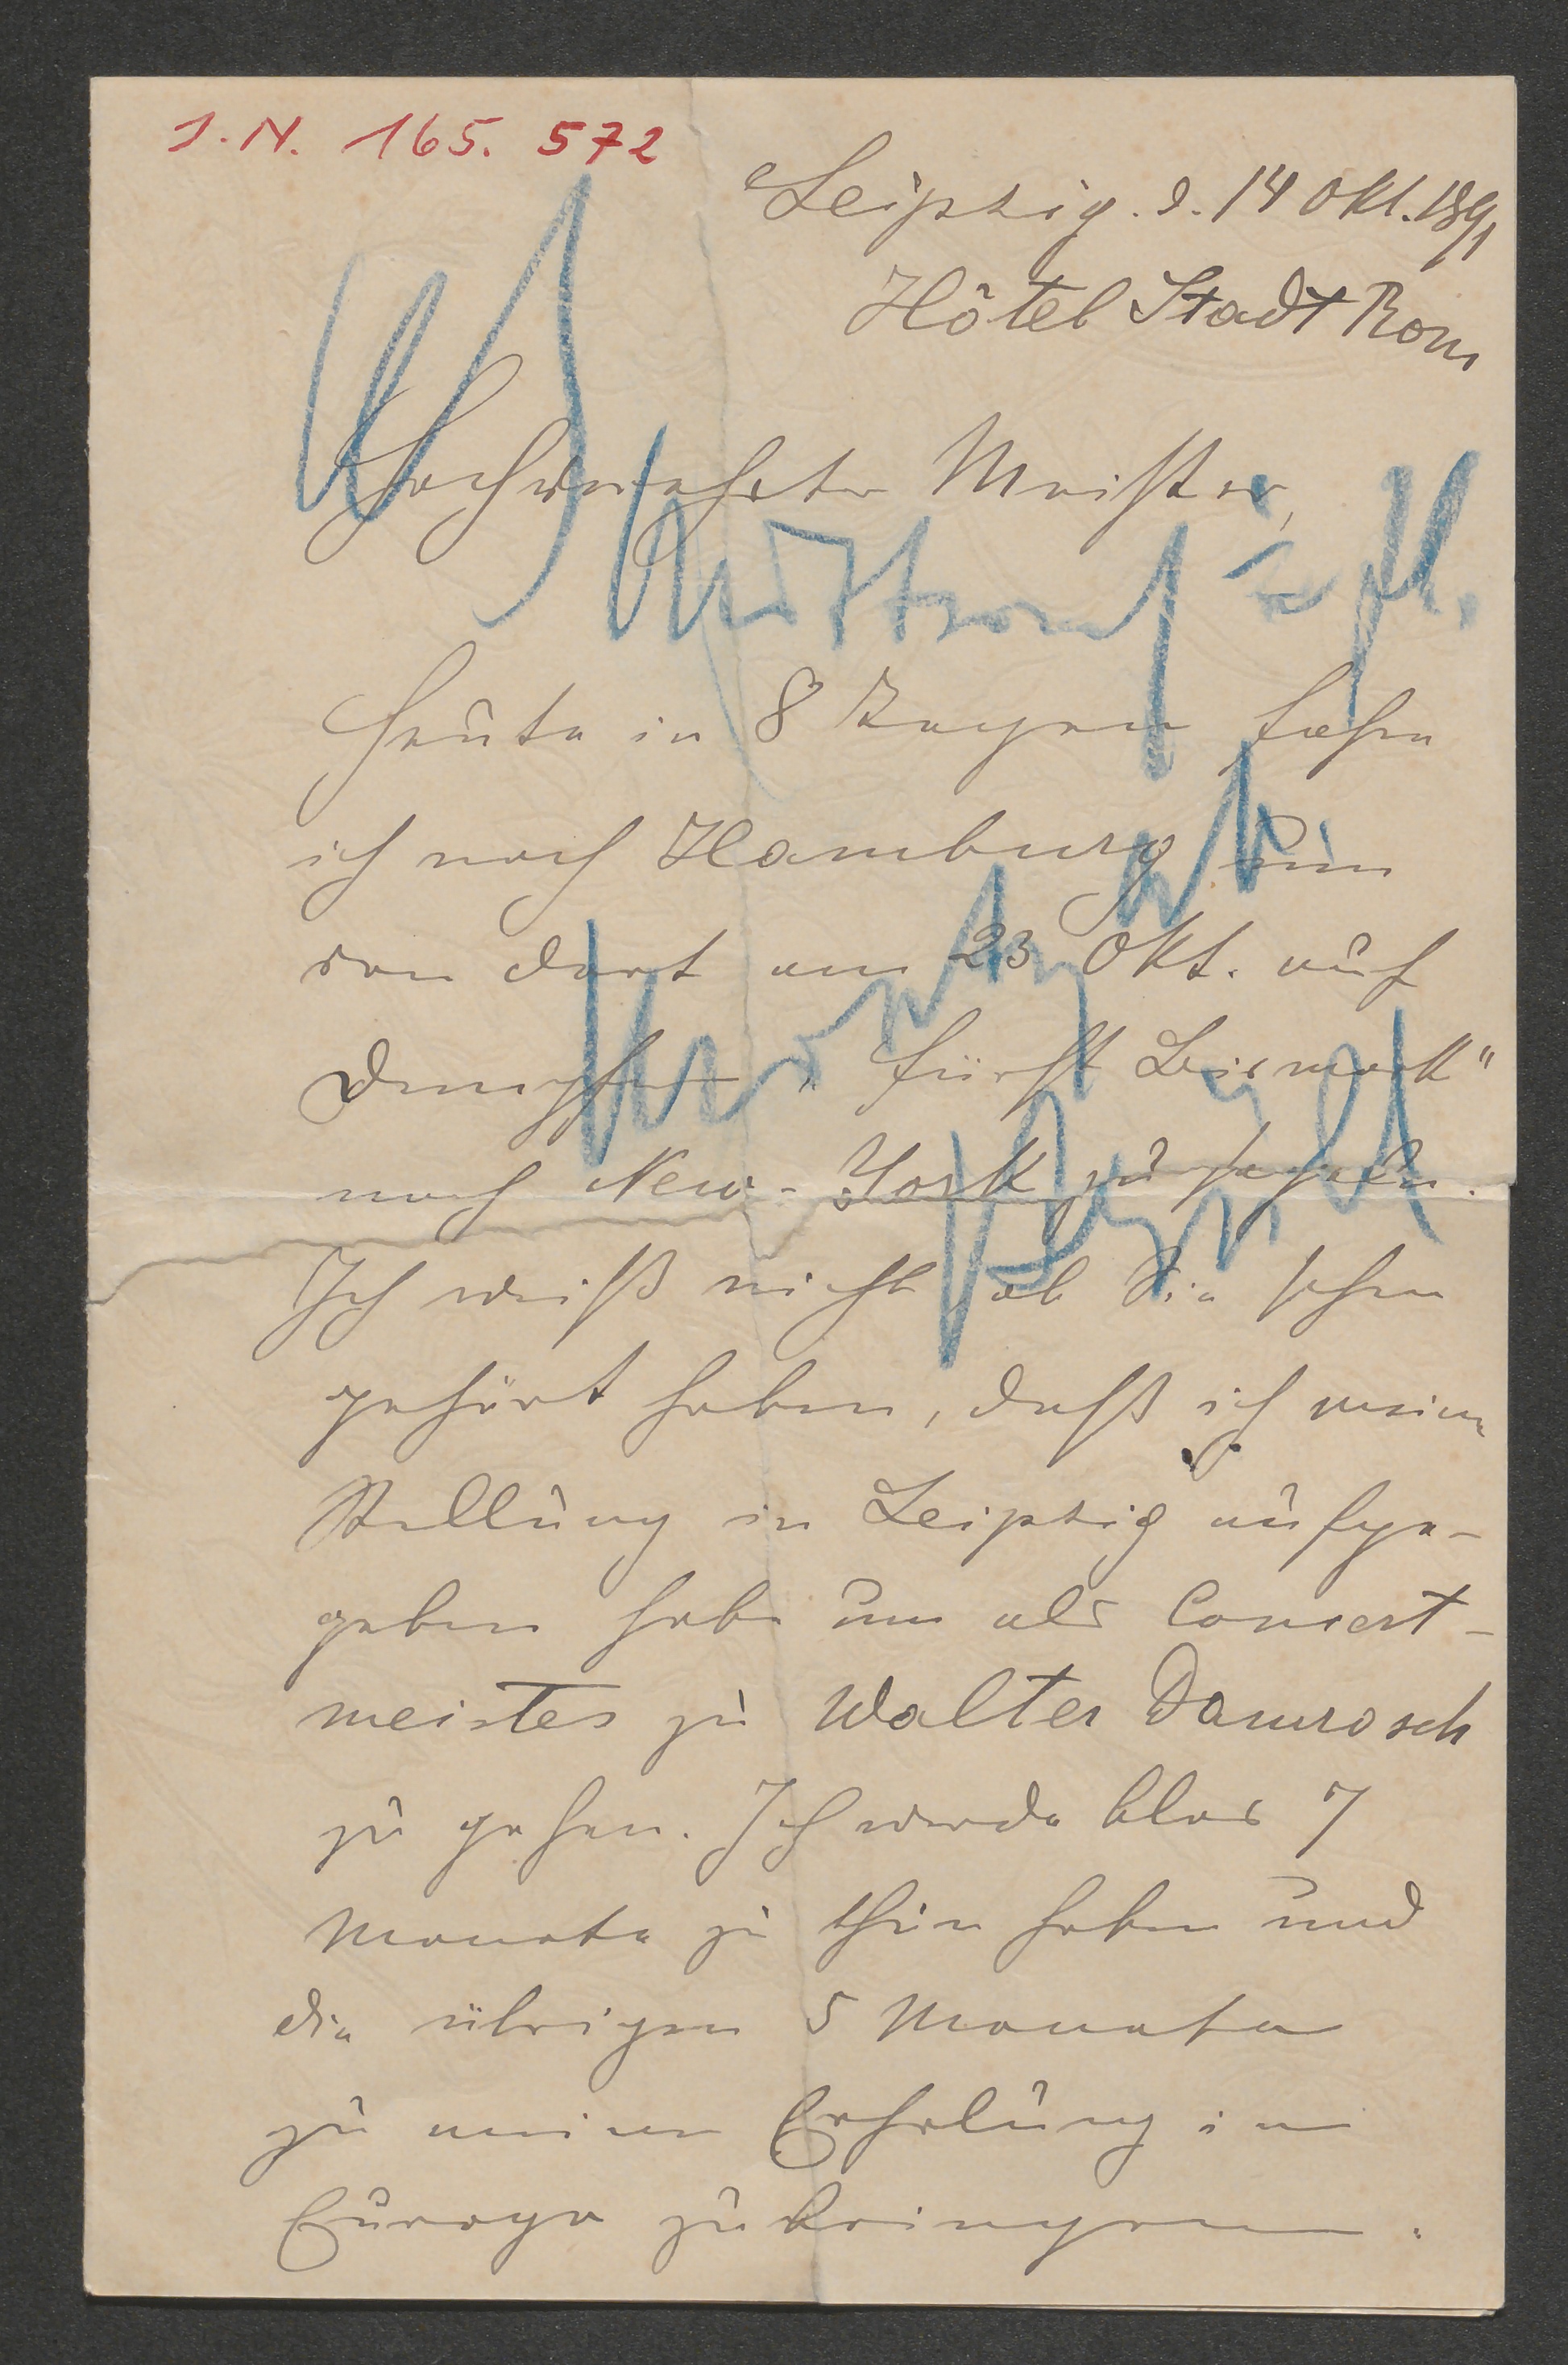 J.N. 165.572
Leipzig. d. 14 Okt. 1891
Hôtel Stadt Rom
Hochverehrter Meister,
Heute in 8 Tagen fahre
ich nach Hamburg um
von dort am 23 Okt. auf
Dampfer „Fürst Bismark"
nach New-York zu fahren.
Ich weiß nicht ob Sie schon
gehört haben, daß ich meine
Stellung in Leipzig aufge-
geben habe um als Concert-
meister zu Walter Damrosch
zu gehen. Ich werde blos 7
Monate zu thun haben und
die übrigen 5 Monate
zu meiner Erholung in
Europa zubringen.